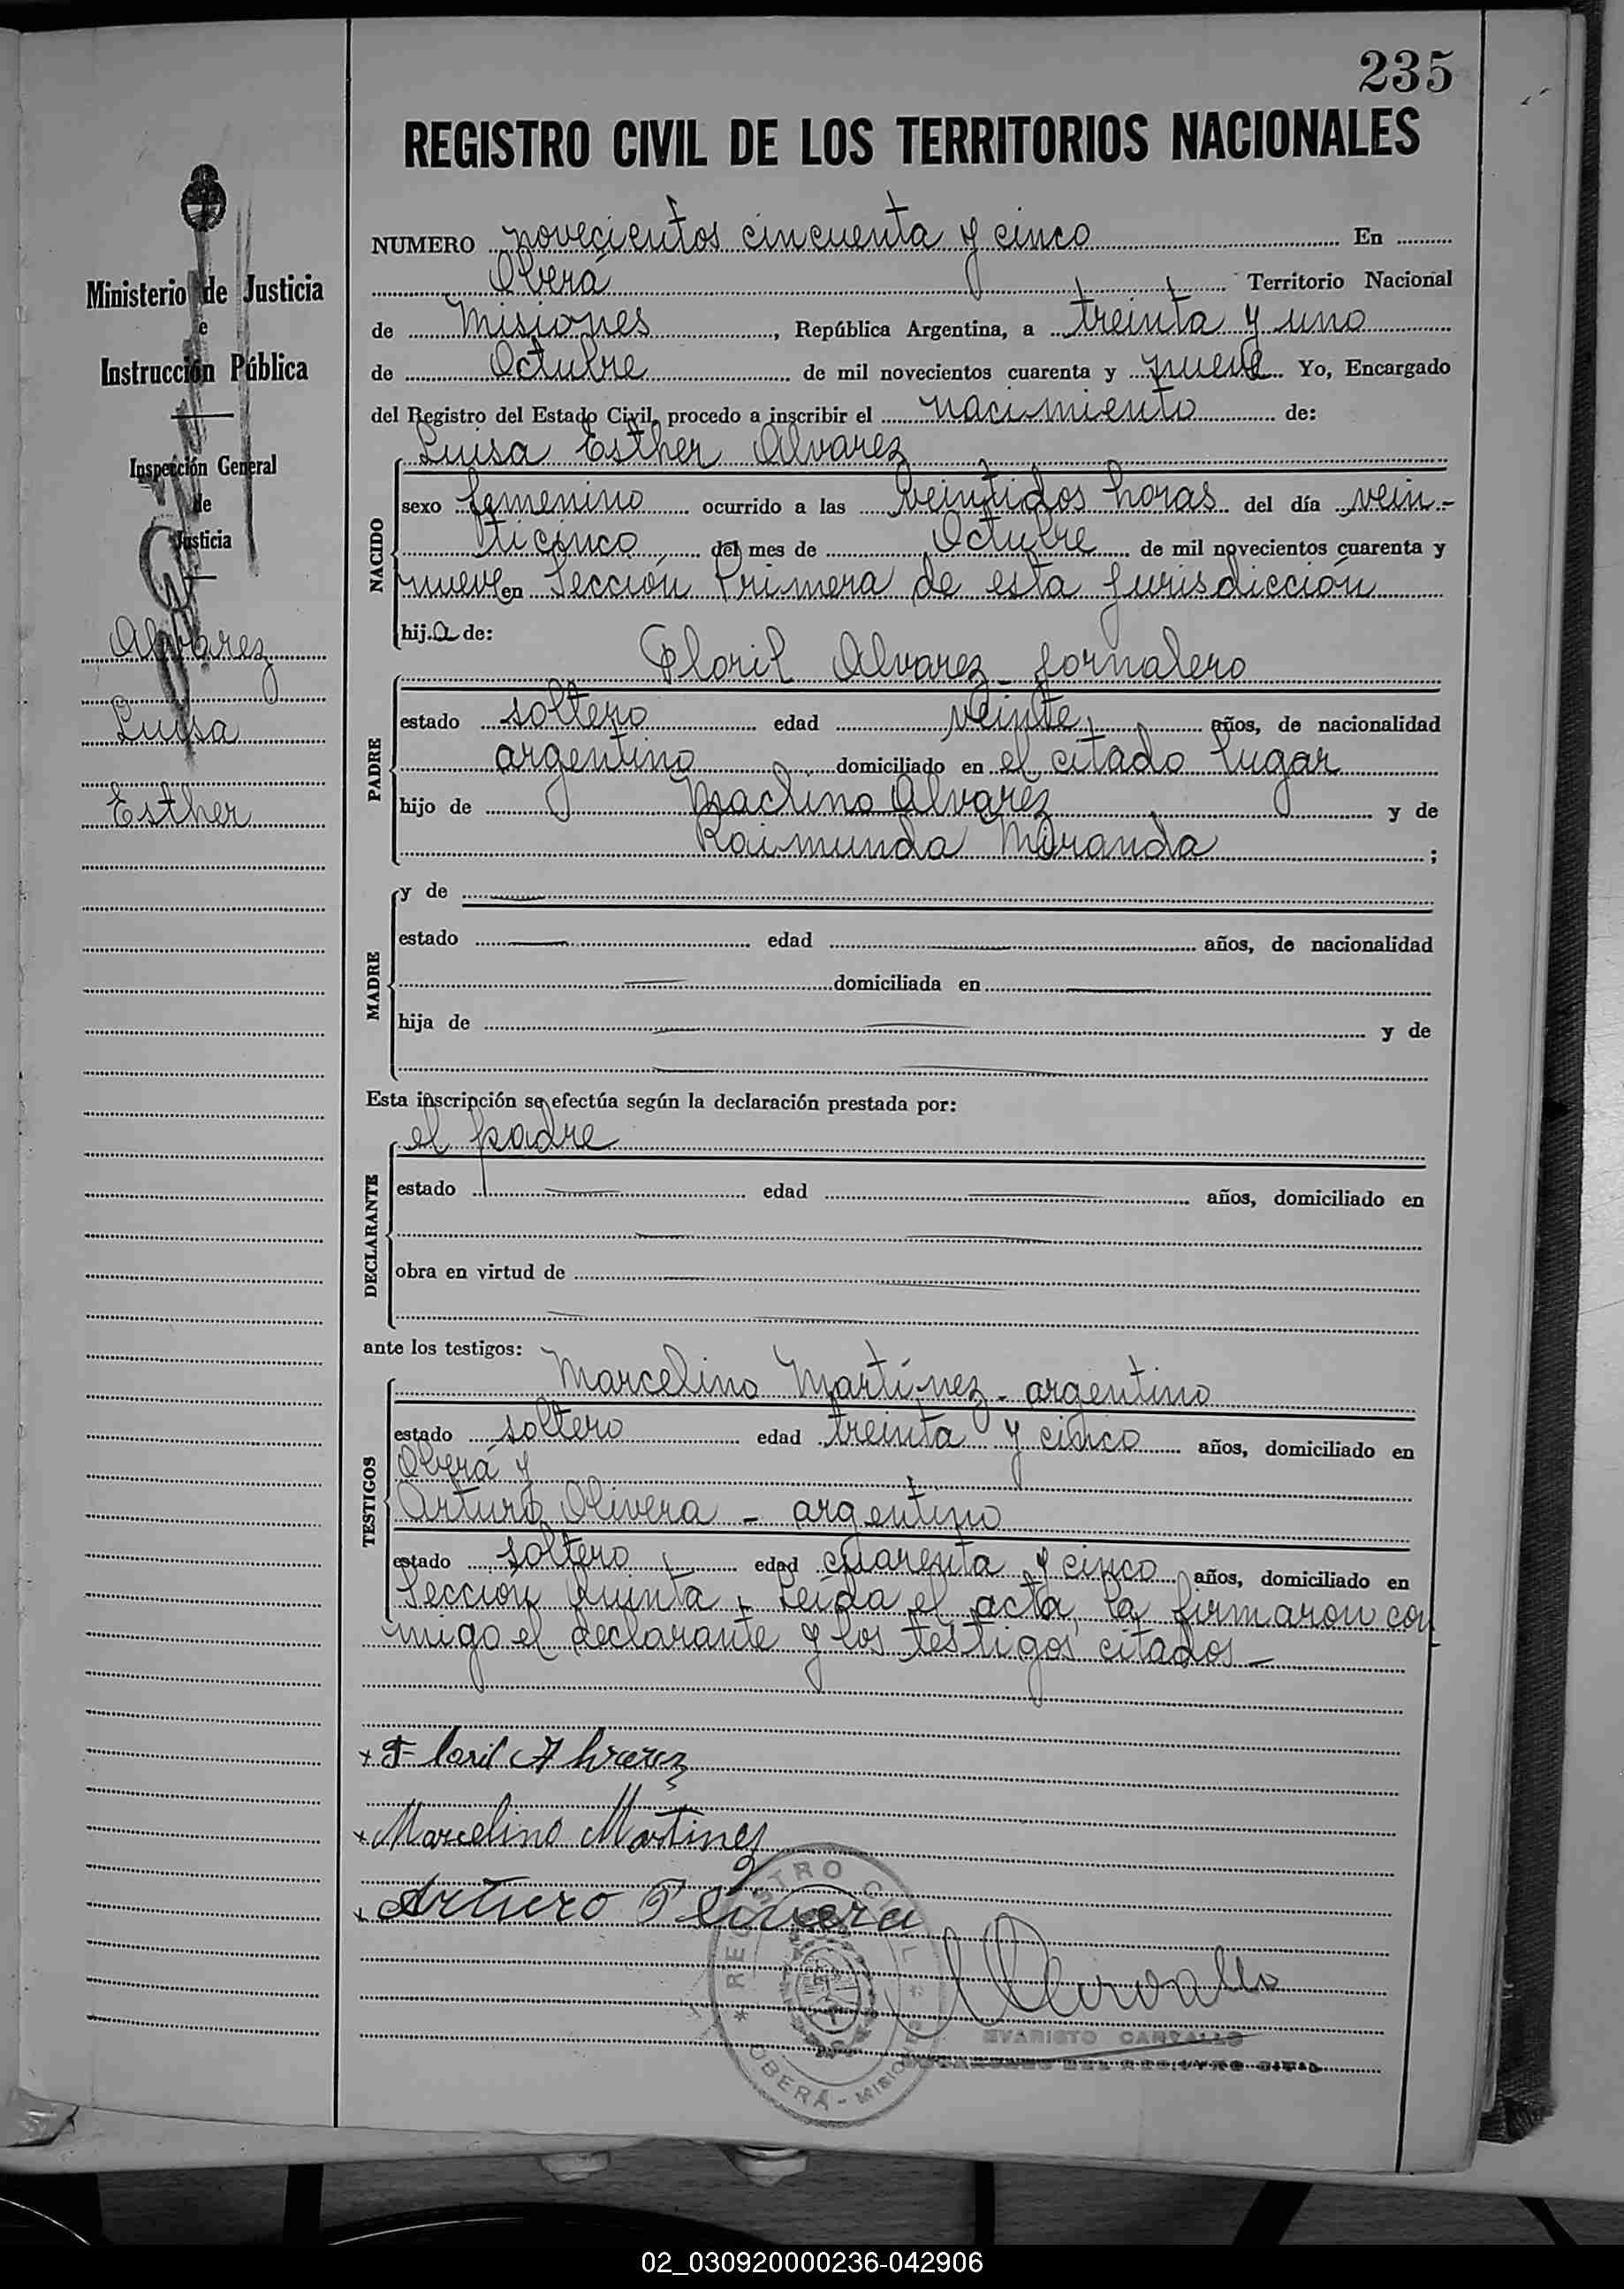 235
REGISTRO CIVIL DE LOS TERRITORIOS NACIONALES
NUMERO novecientos cincuenta y cinco En
Oberá Territorio Nacional
de Misiones, República Argentina, a treinta y uno
de Octubre de mil novecientos cuarenta y nueve Yo, Encargado
del Registro del Estado Civil, procedo a inscribir el nacimiento de:
Luisa Esther Alvarez
NACIDO
sexo femenino ocurrido a las veintidos horas del día vein-
ticinco del mes de Octubre de mil novecientos cuarenta y
nueve en Sección Primera de esta jurisdicción
hija de:
Floril Alvarez - jornalero
PADRE
estado soltero edad veinte años, de nacionalidad
argentino domiciliado en el citado lugar
hijo de Alvarez y de
Raimunda Miranda ;
MADRE
y de
estado edad años, de nacionalidad
domiciliada en
hija de y de
Esta inscripción se efectúa según la declaración prestada por:
el padre
DECLARANTE
estado edad años, domiciliado en
obra en virtud de
ante los testigos:
Marcelino Martínez - argentino
TESTIGOS
estado soltero edad treinta y cinco años, domiciliado en
Oberá y
Arturo Olivera - argentino
estado soltero edad cuarenta y cinco años, domiciliado en
Sección Quinta, Leída el acta, la firmaron con
migo el declarante y los testigos citados -
x Floril Alvarez
x Marcelino Martinez
x Arturo
Carvallo
EVARISTO CARVALLO
ENCARGADO DEL REGISTRO CIVIL
* REGISTRO CIVIL *
OBERÁ - MISIONES
Ministerio de Justicia
e
Instrucción Pública
Inspección General
de
Justicia
Alvarez
Luisa
Esther
02_030920000236-042906